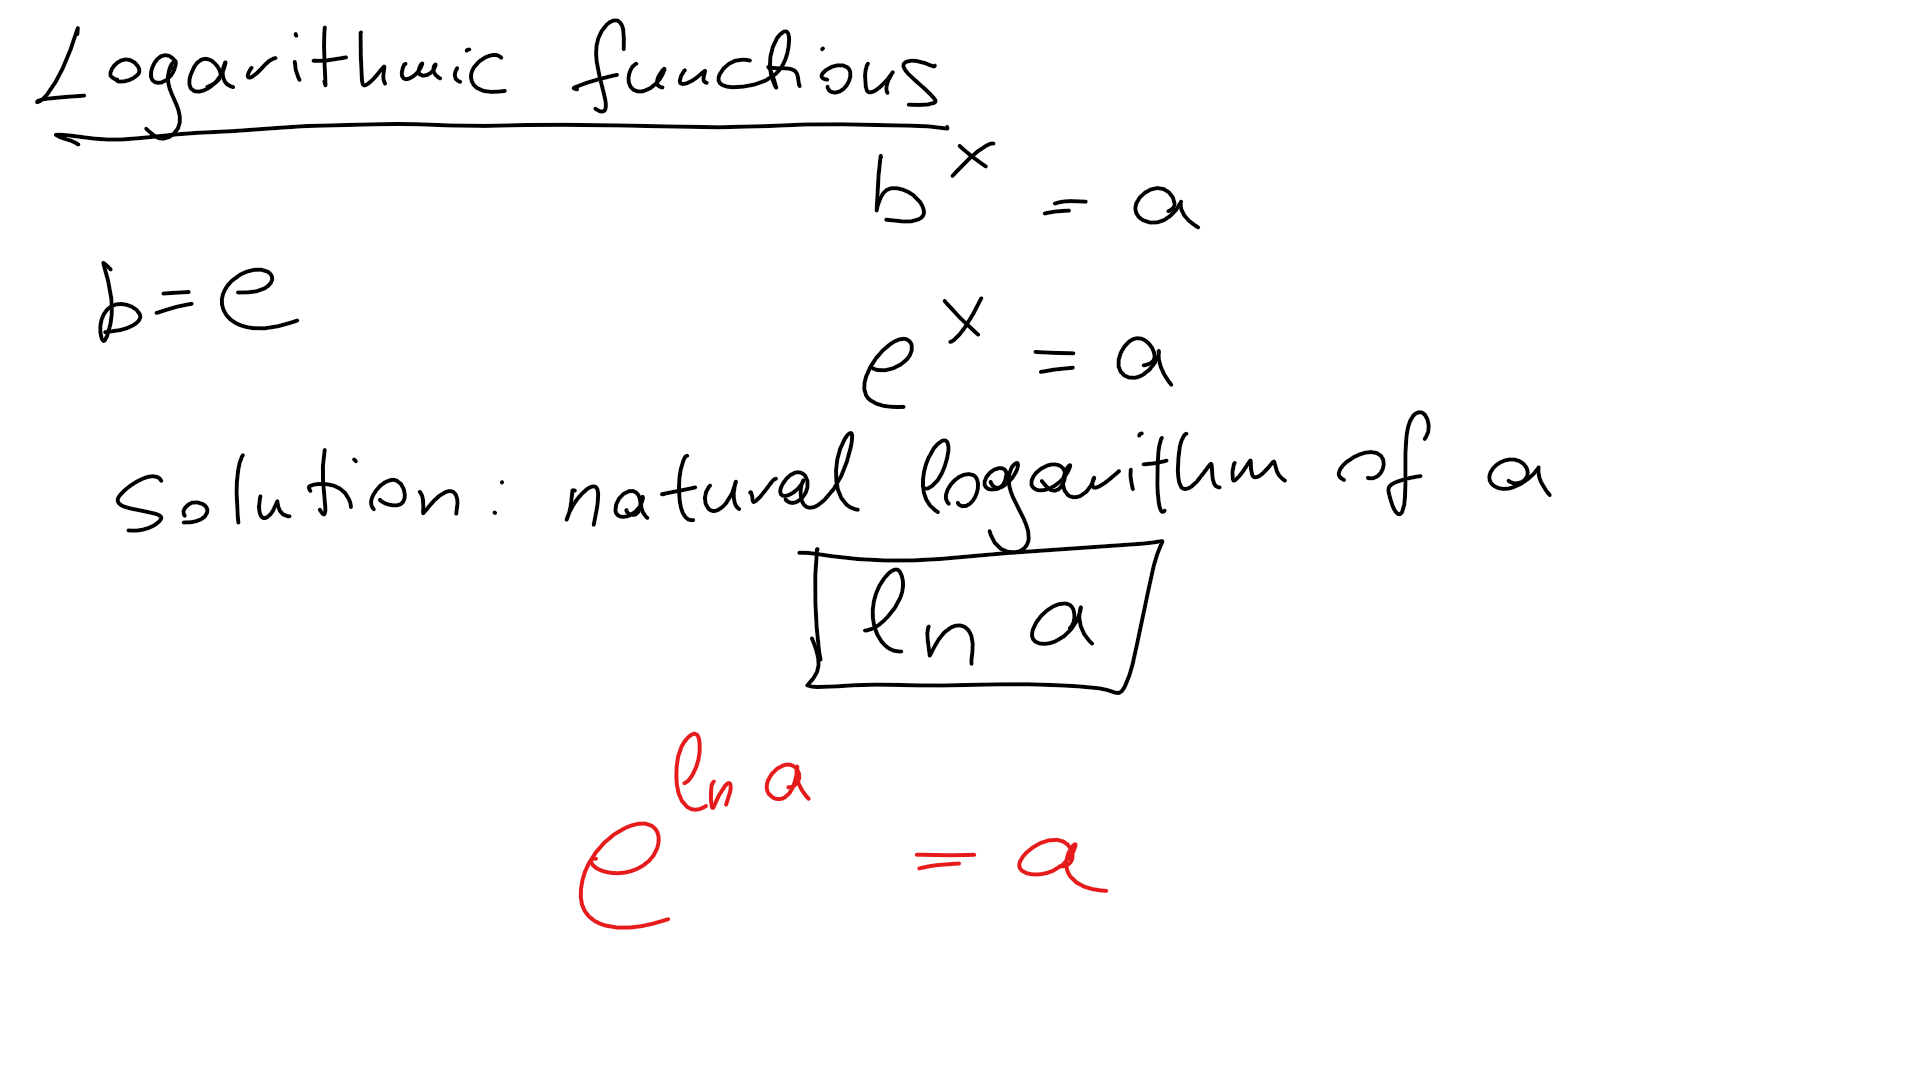 Logarithmic functions
b^x = a
b = e
e^x = a
Solution: natural logarithm of a
ln a
e^{ln a} = a